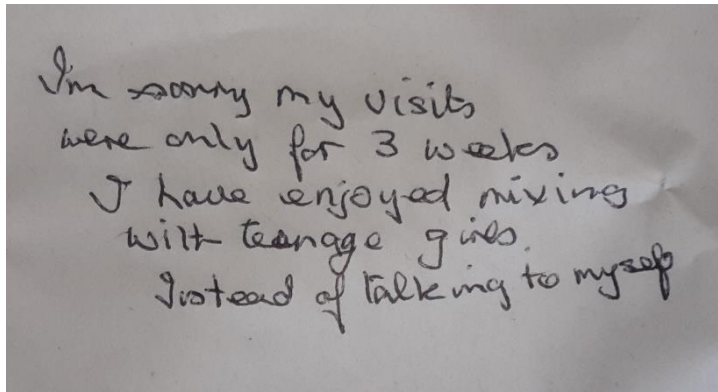 I'm sorry my visits
were only for 3 weeks
I have enjoyed mixing
with teenage girls.
Instead of talking to myself